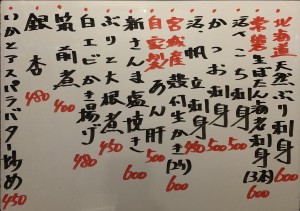 北海道天然ぶり刺身 600
常磐生ぼたん海老刺身(3本) 600
北こち刺身 500
かつお刺身 500
活〆帆立刺身 450
宮城産殻付生かき(2ケ) 600
自家製あん肝 500
新さんま塩焼き 600
ぶりと大根煮 450
白エビかき揚げ 480
筑前煮 400
銀杏 480
いかとアスパラバター炒め 450